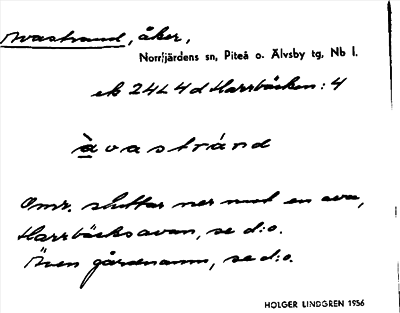 Avastrand, åker,
Norrfjärdens sn, Piteå o. Älvsby tg, Nb l.
ek 24L4d Harrbäcken: 4
àvastránd
Omr. sluttar ner mot en ava,
Harrbäcksavan, se d:o.
Även gårdsnamn, se d:o.
HOLGER LINDGREN 1956